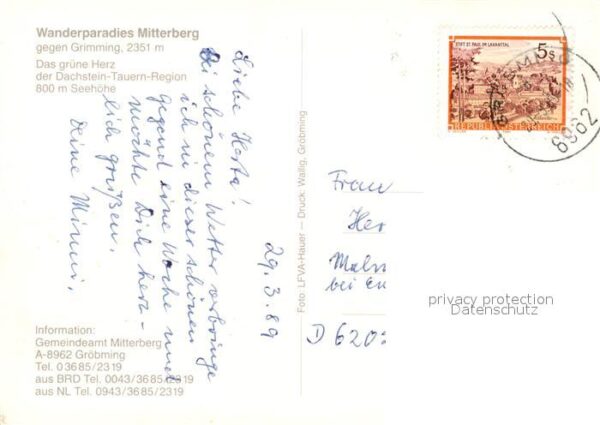 Wanderparadies Mitterberg
gegen Grimming, 2351 m
Das grüne Herz
der Dachstein-Tauern-Region
800 m Seehöhe
29.3.89
Liebe Herta!
Bei schönem Wetter verbringe
ich in dieser schönen
Gegend eine Woche und
möchte Dich herz-
lich grüßen.
Deine Minni.
Information:
Gemeindeamt Mitterberg
A-8962 Gröbming
Tel. 03685/2319
aus BRD Tel. 0043/3685/2319
aus NL Tel. 0943/3685/2319
Foto: LFVA-Hauer – Druck: Wallig, Gröbming
STIFT ST. PAUL IM LAVANTTAL
5 S
REPUBLIK ÖSTERREICH
8962
Frau
Her
bei
D 620
privacy protection
Datenschutz